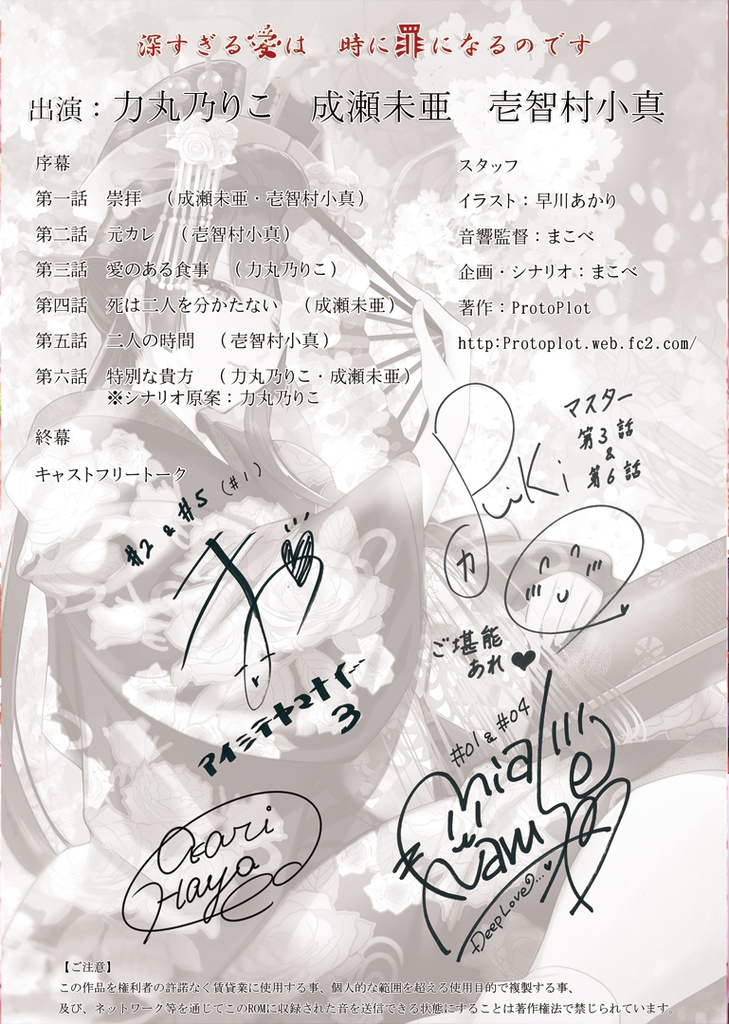 深すぎる愛は　時に罪になるのです
出演：力丸乃りこ　成瀬未亜　壱智村小真
序幕
第一話　崇拝　（成瀬未亜・壱智村小真）
第二話　元カレ　（壱智村小真）
第三話　愛のある食事　（力丸乃りこ）
第四話　死は二人を分かたない　（成瀬未亜）
第五話　二人の時間　（壱智村小真）
第六話　特別な貴方　（力丸乃りこ・成瀬未亜）
※シナリオ原案：力丸乃りこ
終幕
キャストフリートーク
スタッフ
イラスト：早川あかり
音響監督：まこべ
企画・シナリオ：まこべ
著作：ProtoPlot
http:Protoplot.web.fc2.com/
マスター
第3話
&
第6話
RiKi
力
#2 & #5 (#1)
ご堪能
あれ♥
アイシテヤマナイ
3
#01 & #04
Mia
Naruse
DeepLove
Akari
Haya
【ご注意】
この作品を権利者の許諾なく賃貸業に使用する事、個人的な範囲を超える使用目的で複製する事、
及び、ネットワーク等を通じてこのROMに収録された音を送信できる状態にすることは著作権法で禁じられています。